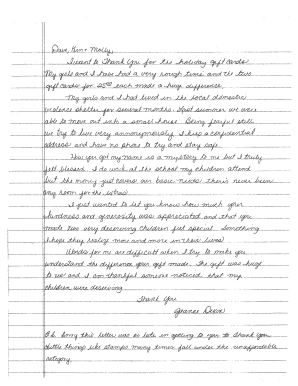 Dave, Ken & Molly,
I want to Thank You for the holiday gift cards.
My girls and I have had a very rough time and the two
gift cards for $25.00 each made a huge difference.
My girls and I had lived in the local domestic
violence shelter for several months. Last summer we were
able to move out into a small house. Being fearful still
we try to live very annonymously. I keep a confidential
address and have no phone to try and stay safe.
How you got my name is a mystery to me but I truly
felt blessed. I do work at the school my children attend
but the money just covers our basic needs, there's never been
any room for the extras.
I just wanted to let you know how much your
kindness and generosity was appreciated and that you
made two very deserving children feel special. Something
I hope they realize more and more in their lives.
Words for me are difficult when I try to make you
understand the difference your gift made. The gift was huge
to us and I am thankful someone noticed that my
children were deserving.
Thank You
P.S. Sorry this letter was so late in getting to you to thank you
little things like stamps many times fall under the unaffordable
category.